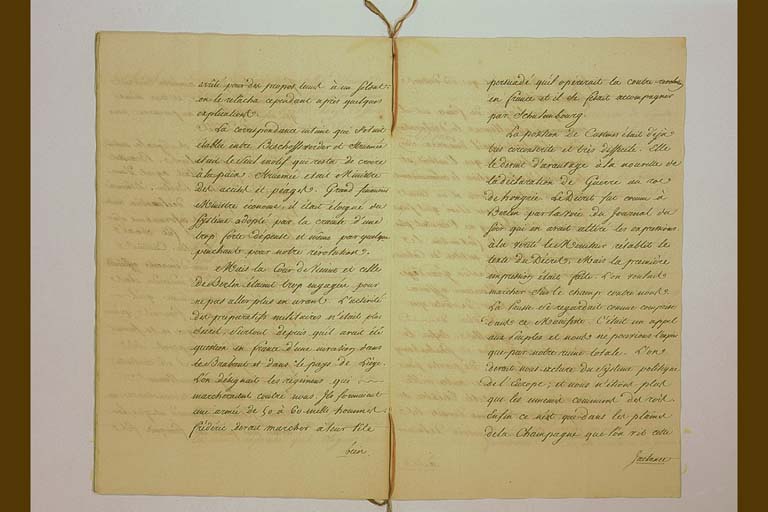 arrêté pour des propos tenus à un soldat:
on le relacha cependant après quelques
explications.
La correspondance intime qui s'etait
établie entre Bischoffswerder et Struensée
était le seul motif qui resta de croire
à la paix. Struensée était Ministre
des accises et péages. Grand financier
Ministre econome, il était éloigné du
systeme adopté par la crainte d'une
trop forte dépense et même par quelque
penchant pour notre révolution.
Mais la Cour de Vienne et celle
de Berlin étaient trop engagées pour
ne pas aller plus en avant. L'activité
des préparatifs militaires n'était plus
secret. Surtout depuis qu'il avait été
question en france d'une invasion dans
le Brabant et dans le pays de Liège.
L'on désignait les régimens qui
marcheraient contre nous. Ils formaient
une armée de 50 à 60 mille hommes.
frédéric devait marcher à leur tête
bien
persuadé qu'il opérerait la contre-révolon
en france et il se fesait accompagner
par Schulembourg.
La position de Custine était déjà
très circonscrite et très difficile. Elle
le devint d'avantage à la nouvelle de
la déclaration de Guerre au roi
de hongrie. Le Décret fut connu à
Berlin par la voie du Journal du
soir qui en avait altéré les expressions
à la vérité le Moniteur rétablit le
texte du Décret. Mais la première
impression était faite. L'on voulait
marcher sur le champ contre nous.
La Prusse se regardait comme comprise
dans ce Manifeste. C'était un appel
aux peuples et nous ne pouvions
que par notre ruine totale. L'on
devait nous exclure du systême politique
de l'Europe, et nous n'étions plus
que les ennemis communs des rois.
Enfin ce n'est que dans les plaines
de la Champagne que l'on vit cette